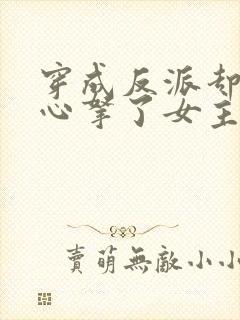 穿成反派却
心掌了女主
賣萌無敵小小